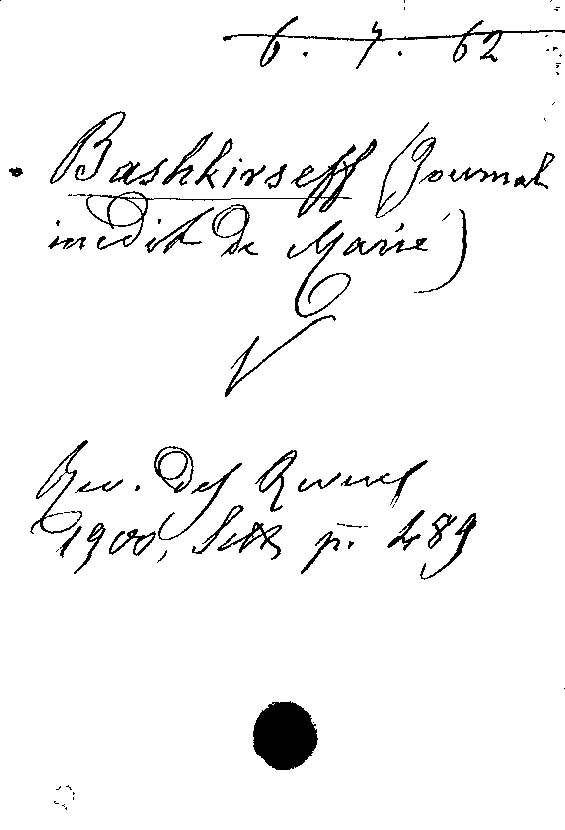 6. 7. 62
Bashkirseff (Journal
inédit de Marie)
Rev. des Revues
1900, Sett. p. 489